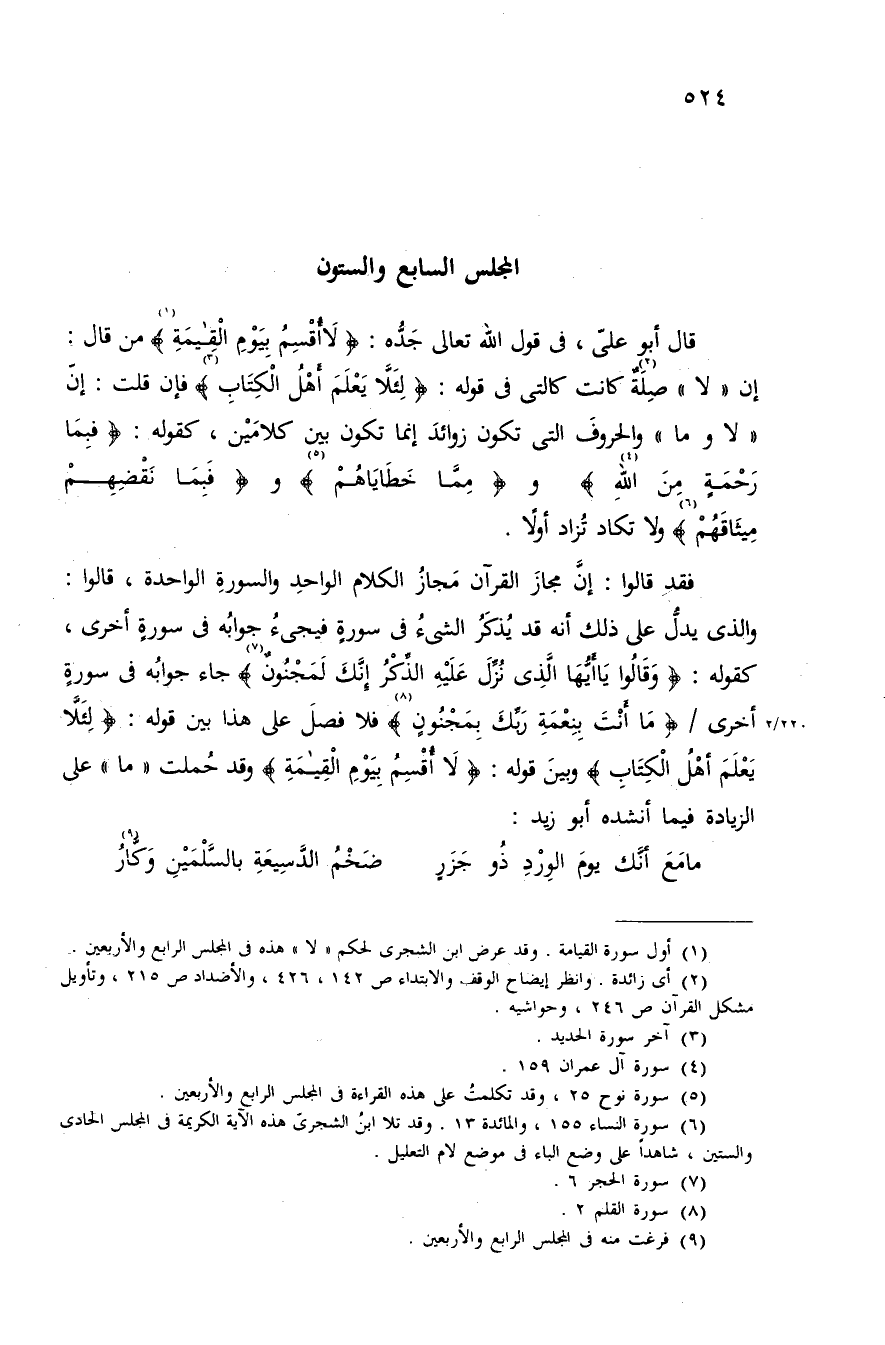 ٥٢٤
المجلس السابع والستون
قال أبو علىّ ، فى قول الله تعالى جَدُّه : ﴿ لَاأُقْسِمُ بِيَوْمِ الْقِيٰمَةِ ﴾(١) من قال :
إن « لا » صِلَةٌ(٢) كانت كالتى فى قوله : ﴿ لِئَلَّا يَعْلَمَ أَهْلُ الْكِتَابِ ﴾(٣) فإن قلت : إنّ
« لا و ما » والحروفَ التى تكون زوائدَ إنما تكون بين كلامَيْن ، كقوله : ﴿ فَبِمَا
رَحْمَةٍ مِنَ اللهِ ﴾(٤) و ﴿ مِمَّا خَطَايَاهُمْ ﴾(٥) و ﴿ فَبِمَا نَقْضِهِمْ
مِيثَاقَهُمْ ﴾(٦) ولا تكاد تُزاد أولًا .
فقد قالوا : إنَّ مجازَ القرآن مَجازُ الكلام الواحدِ والسورةِ الواحدة ، قالوا :
والذى يدلُّ على ذلك أنه قد يُذكَرُ الشىءُ فى سورةٍ فيجىءُ جوابُه فى سورةٍ أخرى ،
كقوله : ﴿ وَقَالُوا يَاأَيُّهَا الَّذِى نُزِّلَ عَلَيْهِ الذِّكْرُ إِنَّكَ لَمَجْنُونٌ ﴾(٧) جاء جوابُه فى سورةٍ
٢/٢٢٠ أخرى / ﴿ مَا أَنْتَ بِنِعْمَةِ رَبِّكَ بِمَجْنُونٍ ﴾(٨) فلا فصلَ على هذا بين قوله : ﴿ لِئَلَّا
يَعْلَمَ أهْلُ الْكِتَابِ ﴾ وبينَ قوله : ﴿ لَا أُقْسِمُ بِيَوْمِ الْقِيٰمَةِ ﴾ وقد حُملت « ما » على
الزيادة فيما أنشده أبو زيد :
مامَعَ أنَّك يومَ الوِرْدِ ذُو جَزَرٍ ضَخْمُ الدَّسِيعَةِ بالسَّلْمَيْنِ وَكَّارُ(٩)
(١) أول سورة القيامة . وقد عرض ابن الشجرى لحكم « لا » هذه فى المجلس الرابع والأربعين .
(٢) أى زائدة . وانظر إيضاح الوقف والابتداء ص ١٤٢ ، ٤٢٦ ، والأضداد ص ٢١٥ ، وتأويل
مشكل القرآن ص ٢٤٦ ، وحواشيه .
(٣) آخر سورة الحديد .
(٤) سورة آل عمران ١٥٩ .
(٥) سورة نوح ٢٥ ، وقد تكلمتُ على هذه القراءة فى المجلس الرابع والأربعين .
(٦) سورة النساء ١٥٥ ، والمائدة ١٣ . وقد تلا ابنُ الشجرىّ هذه الآية الكريمة فى المجلس الحادى
والستين ، شاهداً على وضع الباء فى موضع لام التعليل .
(٧) سورة الحجر ٦ .
(٨) سورة القلم ٢ .
(٩) فرغت منه فى المجلس الرابع والأربعين .